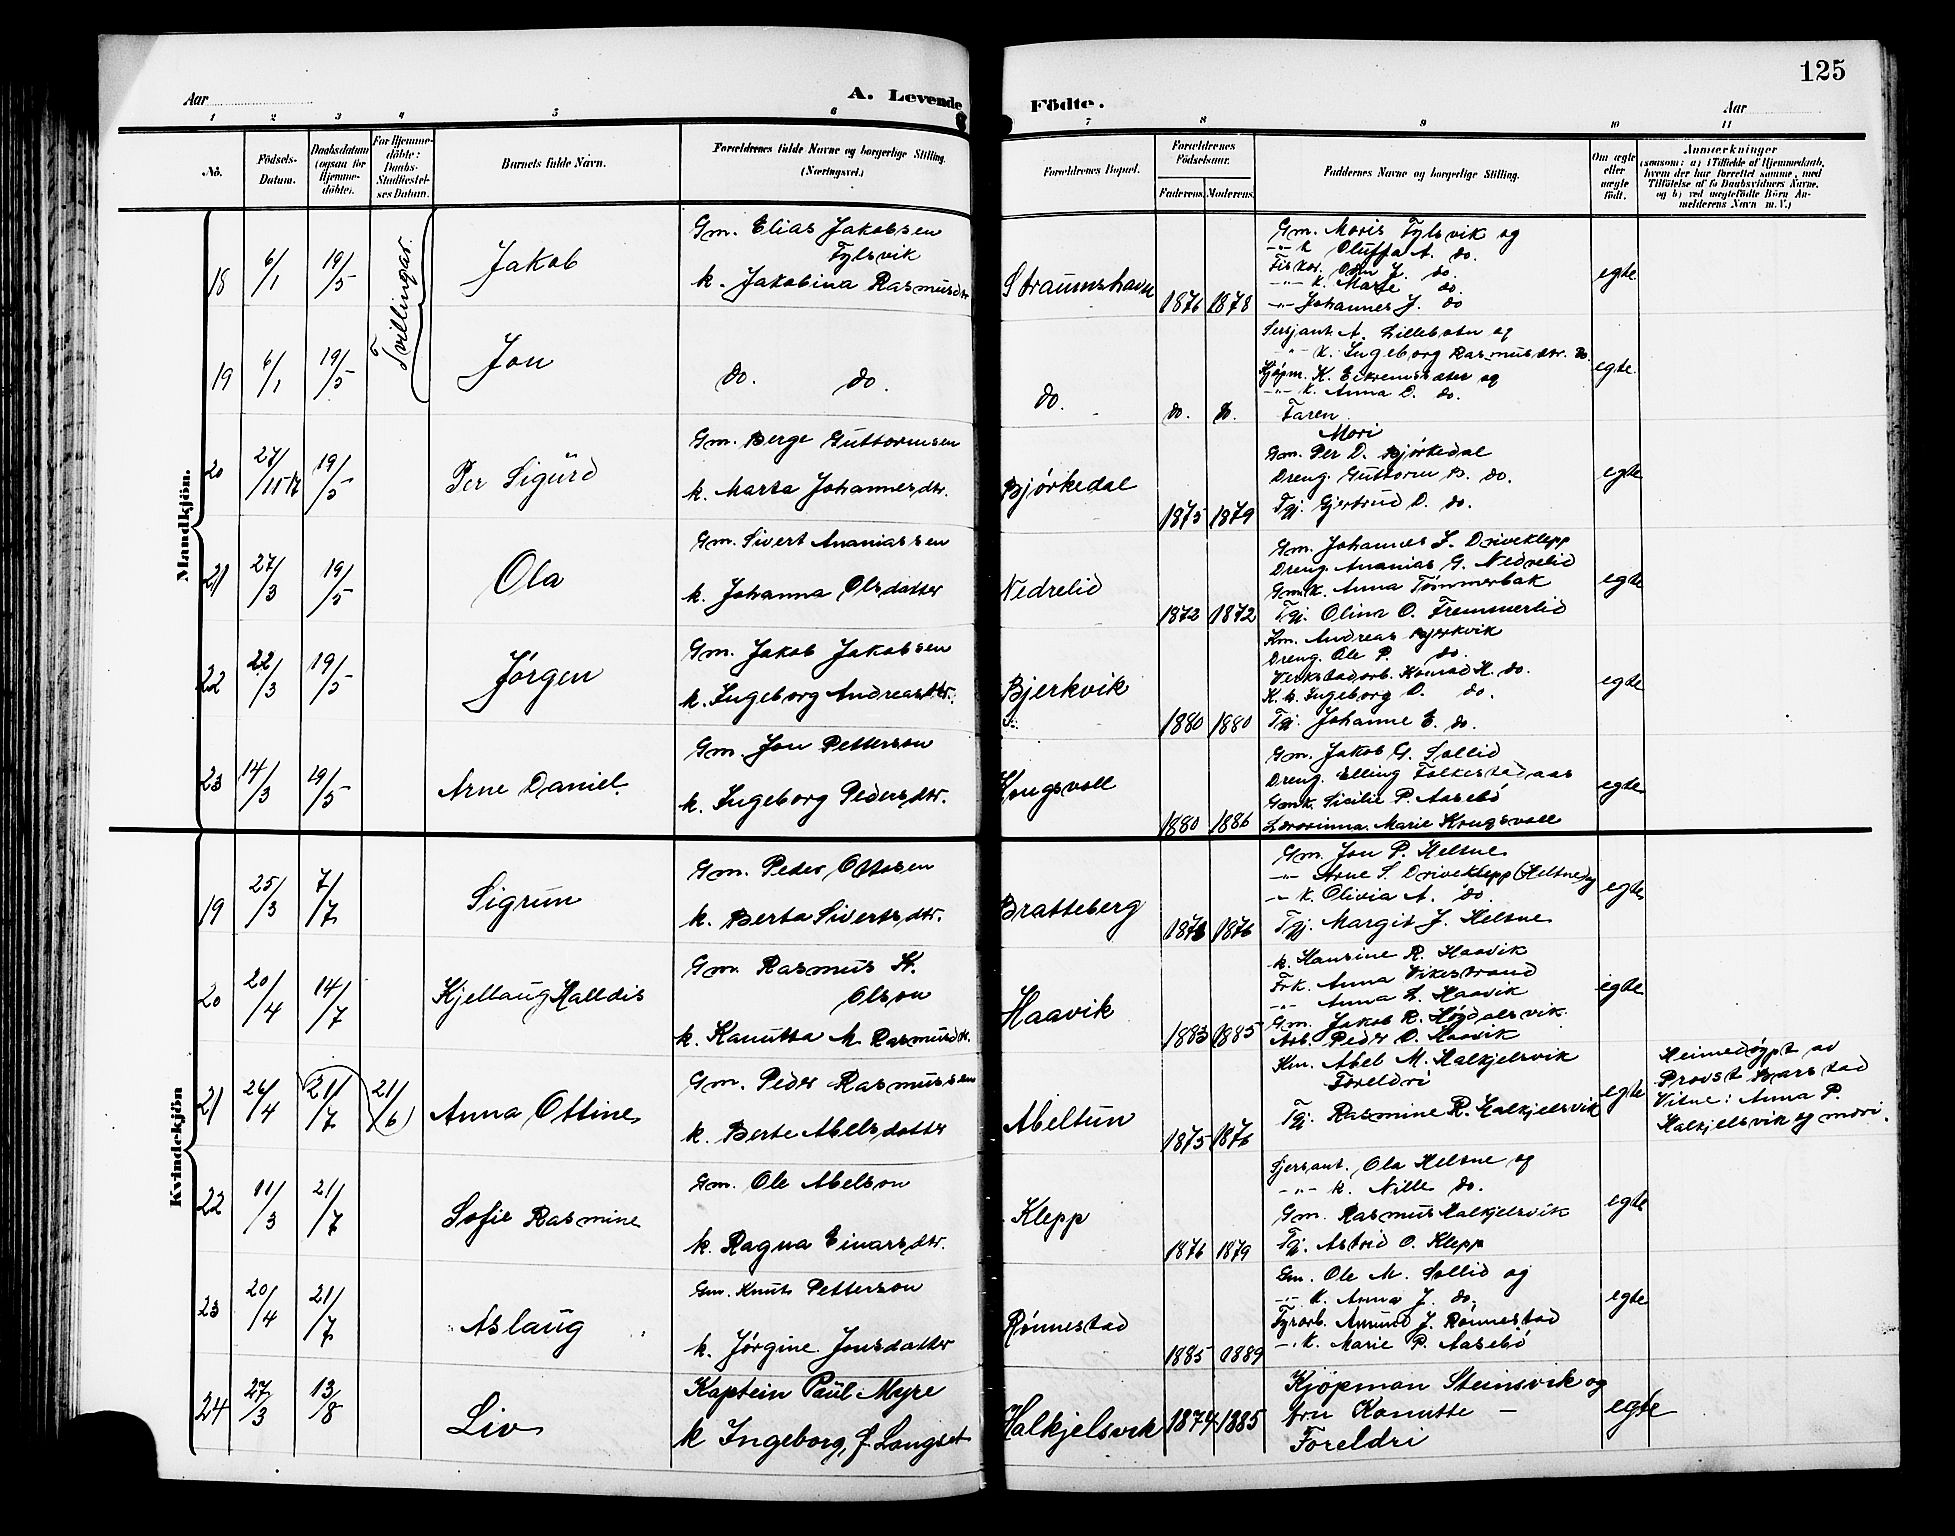 125
Aar
A. Levende Födte.
Aar
1 2 3 4 5 6 7 8 9 10 11
No. Födsels-Datum. Daabsdatum (ogsaa for Hjemme-döbte). For Hjemme-döbte: Daabs-Stadfæstel-ses Datum. Barnets fulde Navn. Forældrenes fulde Navne og borgerlige Stilling. (Næringsvei.) Forældrenes Bopæl. Forældrenes Födselsaar. Faderens. Moderens. Faddernes Navne og borgerlige Stilling. Om ægte eller uægte födt. Anmærkninger (saasom: a) i Tilfælde af Hjemmedaab, hvem der har forrettet samme, med Tilföielse af to Daabsvidners Navne, og b) ved uægtefödte Börn An-melderens Navn m. V.)
Mandkjön.
Tvillingar.
18 6/1 19/5 Jakob
Gm. Elias Jakobsen
Fylsvik
k. Jakobina Rasmusdtr
Straumshavn 1876 1878
Gm. Moris Fylsvik og
-"- k Oluffa A. do.
Fiskar. Odin J. do.
-"- k. Marie do.
-"- Johannes J. do
egte
19 6/1 19/5 Jon
do. do.
do. do. do.
Sersjant A. Lillebotn og
-"- k. Ingeborg Rasmusdtr. do.
Kjøpm. K. Eikremsæter og
-"- k. Anna D. do.
Faren
Mori
egte.
20 27/11-12 19/5 Per Sigurd
Gm. Berge Guttormsen
k. Marta Johannesdtr.
Bjørkedal 1875 1879
Gm. Per D. Bjørkedal
Dreng. Guttorm B. do.
Tgj. Gjertrud D. do.
egte
21 27/3 19/5 Ola
Gm. Sivert Ananiassen
k. Johanna Olsdatter
Nedrelid 1872 1872
Gm. Johannes S. Driveklepp
Dreng. Ananias G. Nedrelid
Gmk. Anna Tømmerbak
Tgj. Olina O. Fremmerlid
egte
22 22/3 19/5 Jørgen
Gm. Jakob Jakobsen
k. Ingeborg Andreasdtr.
Bjerkvik 1880 1880
Km. Andreas Bjerkvik
Dreng. Ole P. do.
Verkstadarb. Konrad K. do.
K. k. Ingeborg O. do.
Tgj. Johanne E. do.
egte
23 14/3 19/5 Arne Daniel.
Gm. Jon Petterson
k. Ingeborg Pedersdtr.
Krugsvoll 1880 1886
Gm. Jakob G. Sollid
Dreng. Elling Folkestadaas
Gmk. Sicilie P. Aasebø
Lærarinna. Marie Krugsvoll
egte
Kvindekjön
19 25/3 7/7 Sigrun
Gm. Peder Ottosen
k. Berta Sivertsdtr.
Bratteberg 1873 1876
Gm. Jon P. Heltne
-"- Arne S. Driveklepp (Heltne) og
-"- k. Olivia A. do.
Tgj. Margit J. Heltne
egte
20 20/4 14/7 Kjellaug Halldis
Gm. Rasmus K.
Olson
k. Kanutta M. Rasmusdtr.
Haavik 1883 1885
k. Hansine R. Haavik
Frk. Anna Vikestrand
-"- Anna L. Haavik
Gm. Jakob R. Høydalsvik
Arb. Peder O. Haavik
egte
21 26/4 21/7 21/6 Anna Ottine
Gm. Peder Rasmussen
k. Berte Abelsdatter
Abeltun 1875 1876
Km. Abel M. Halkjelsvik
Foreldri
Tgj. Rasmine R. Halkjelsvik
egte
Heimedøypt av
Provst Barstad
Vitne: Anna P.
Halkjelsvik og mori.
22 11/3 21/7 Sofie Rasmine
Gm. Ole Abelson
k. Ragna Einarsdtr.
Klepp 1876 1879
Sjersant. Ola Heltne og
-"- k. Nille do.
Gm. Rasmus Halkjelsvik
Tgj. Astrid O. Klepp
egte
23 20/4 21/7 Aslaug
Gm. Knut Petterson
k. Jørgine Jonsdatter
Rønnestad 1885 1889
Gm. Ole M. Sollid og
-"- k. Anna J. do.
Fyrarb. Amund J. Rønnestad
-"- k. Marie P. Aasebø
egte
24 27/3 13/8 Liv
Kaptein Paul Myre
k Ingeborg, f. Langset
Halkjelsvik 1874 1885
Kjøpman Steinsvik og
fru Kanutte -
Foreldri
egte